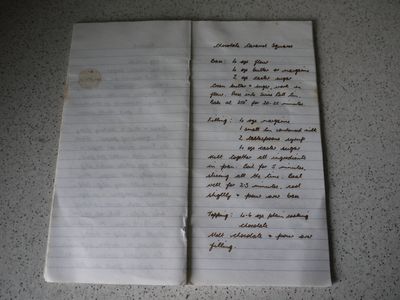 Chocolate Caramel Squares
Base: 6 ozs flour
4 ozs butter or margarine
2 ozs caster sugar
Cream butter + sugar, work in
flour. Press into Swiss Roll tin.
Bake at 350° for 20-25 minutes.
Filling: 4 ozs margarine
1 small tin condensed milk
2 tablespoons syrup
4 ozs caster sugar
Melt together all ingredients
in pan. Boil for 5 minutes,
stirring all the time. Beat
well for 2-3 minutes. cool
slightly + pour over base
Topping: 4-6 ozs plain cooking
chocolate
Melt chocolate + pour over
filling.